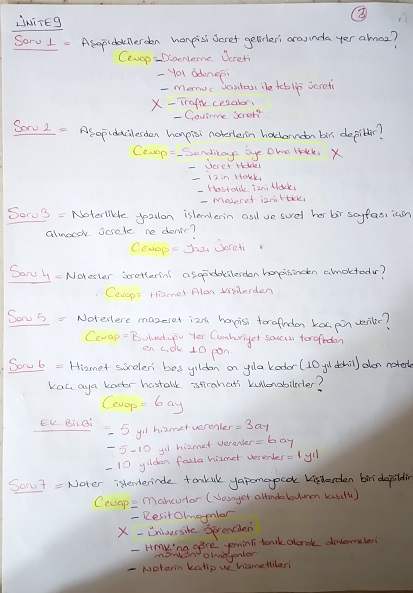 ÜNİTE 9
②
Soru 1 = Aşağıdakilerden hangisi ücret gelirleri arasında yer almaz?
Cevap = Düzenleme ücreti
- Yol ödeneği
- Memur vasıtası ile tebliğ ücreti
X - Trafik cezaları
- Çevirme ücreti
Soru 2 = Aşağıdakilerden hangisi noterlerin haklarından biri değildir?
Cevap = - Sendikaya üye olma Hakkı X
- Ücret Hakkı
- İzin Hakkı
- Hastalık izni Hakkı
- Mazeret izni Hakkı
Soru 3 = Noterlikte yazılan işlemlerin asıl ve suret her bir sayfası için
alınacak ücrete ne denir?
Cevap = Yazı Ücreti
Soru 4 = Noterler ücretlerini aşağıdakilerden hangisinden almaktadır?
Cevap = Hizmet Alan kişilerden
Soru 5 = Noterlere mazeret izni hangisi tarafından kaç gün verilir?
Cevap = Bulunduğu Yer Cumhuriyet savcısı tarafından
en çok 10 gün.
Soru 6 = Hizmet süreleri beş yıldan on yıla kadar (10 yıl dahil) olan noterler
kaç aya kadar hastalık istirahati kullanabilirler?
Cevap = 6 ay
EK BİLGİ
- 5 yıl hizmet verenler = 3 ay
- 5-10 yıl hizmet verenler = 6 ay
- 10 yıldan fazla hizmet verenler = 1 yıl
Soru 7 = Noter işlemlerinde tanıklık yapamayacak kişilerden biri değildir
Cevap = - Mahcurlar (Vesayet altında bulunan kısıtlı)
- Reşit Olmayanlar
X - Üniversite öğrencileri
- HMK'na göre yeminli tanık olarak dinlenmeleri
mümkün olmayanlar
- Noterin katip ve hizmetlileri